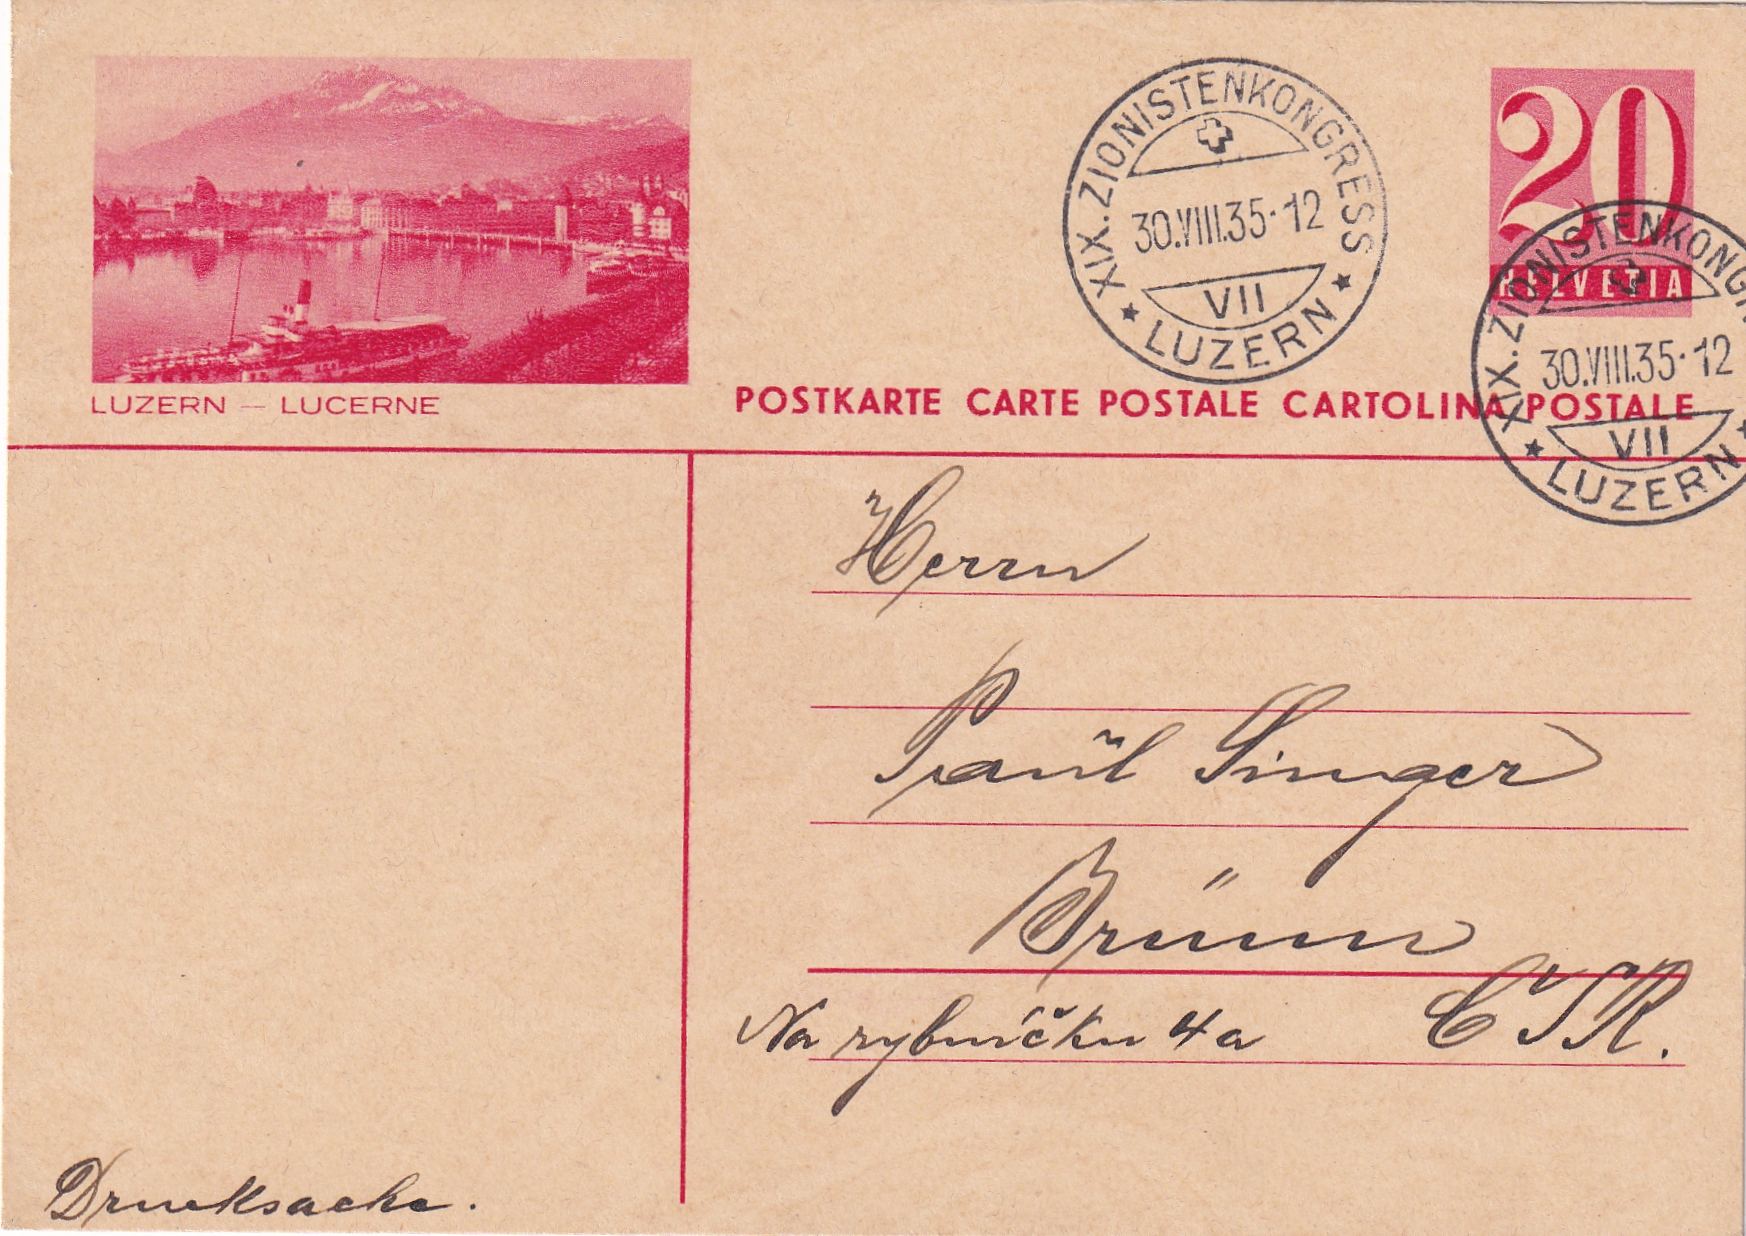 LUZERN — LUCERNE
XIX. ZIONISTENKONGRESS
30.VIII.35·12
VII
★ LUZERN ★
20
HELVETIA
XIX. ZIONISTENKONGR
30.VIII.35·12
VII
★ LUZERN ★
POSTKARTE CARTE POSTALE CARTOLINA POSTALE
Herrn
Paul Singer
Brünn
Na rybníčku 4a ČSR.
Drucksache.